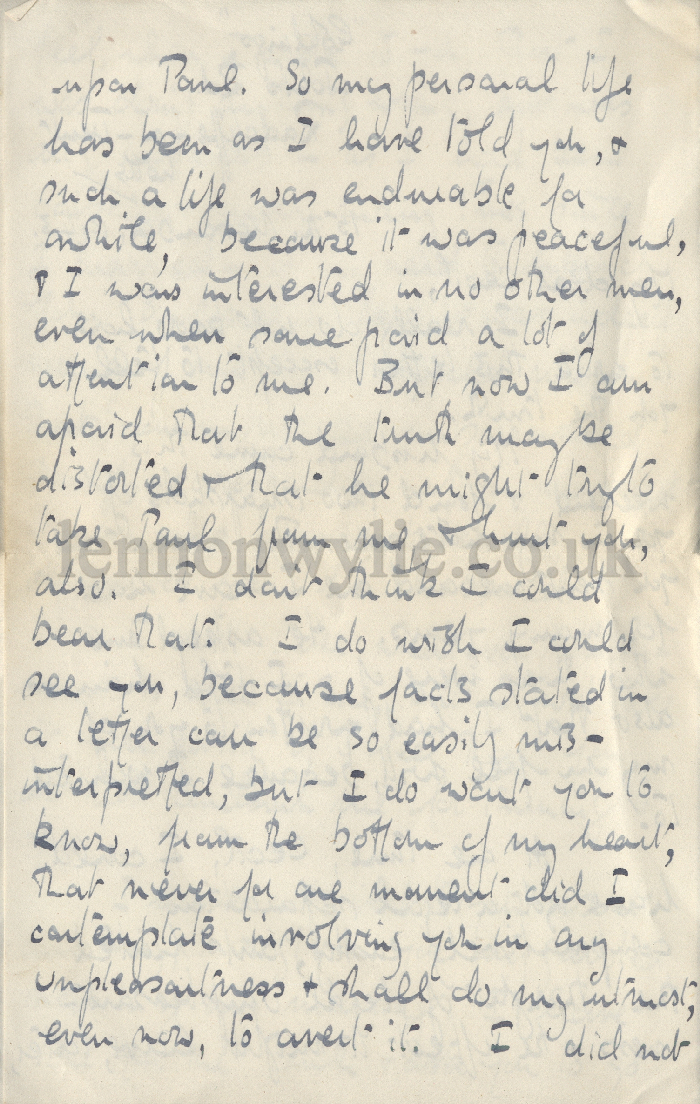 upon Paul. So my personal life
has been as I have told you, &
such a life was endurable for
awhile, because it was peaceful,
& I was interested in no other men,
even when some paid a lot of
attention to me. But now I am
afraid that the truth may be
distorted & that he might try to
take Paul from me & hurt you,
also. I don't think I could
bear that. I do wish I could
see you, because facts stated in
a letter can be so easily mis-
interpretted, but I do want you to
know, from the bottom of my heart,
that never for one moment did I
contemplate involving you in any
unpleasantness & shall do my utmost,
even now, to avert it. I did not
lennonwylie.co.uk